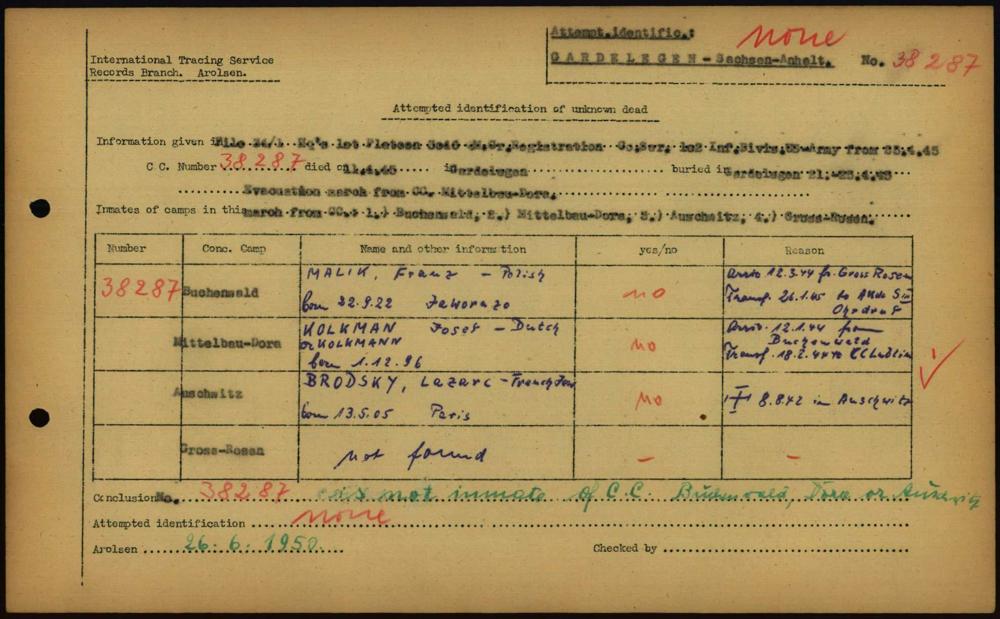 Attempt.identific.: none
International Tracing Service
Records Branch. Arolsen.
GARDELEGEN - Sachsen-Anhalt. No. 38287
Attempted identification of unknown dead
Information given in File 24/1 Hq's 1st Platoon Gr.Registration 102 Inf.Divis.US-Army from 25.4.45
C C. Number 38287 died on 11.4.45 in Gardelegen buried in Gardelegen 21.-23.4.45
Evacuation march from CC. Mittelbau-Dora.
Inmates of camps in this march from CC.: 1.) Buchenwald, 2.) Mittelbau-Dora, 3.) Auschwitz, 4.) Gross-Rosen.
Number Conc. Camp Name and other information yes/no Reason
38287 Buchenwald MALIK, Franz - Polish no arriv 12.3.44 fr. Gross Rosen
born 22.9.22 Jaworzno Transf. 26.1.45 to Akdo S III
Ohrdruf
Mittelbau-Dora KOLKMAN Josef - Dutch no Arriv. 12.1.44 from
or KOLKMANN Buchenwald
born 1.12.96 Transf. 18.2.44 to CC Lublin
Auschwitz BRODSKY, Lazare - French Jew no
born 13.5.05 Paris 8.8.42 in Auschwitz
Gross-Rosen not found - -
Conclusion No. 38287 is not inmate of C.C. Buchenwald, Dora or Auschwitz
Attempted identification none
Arolsen 26.6.1950. Checked by